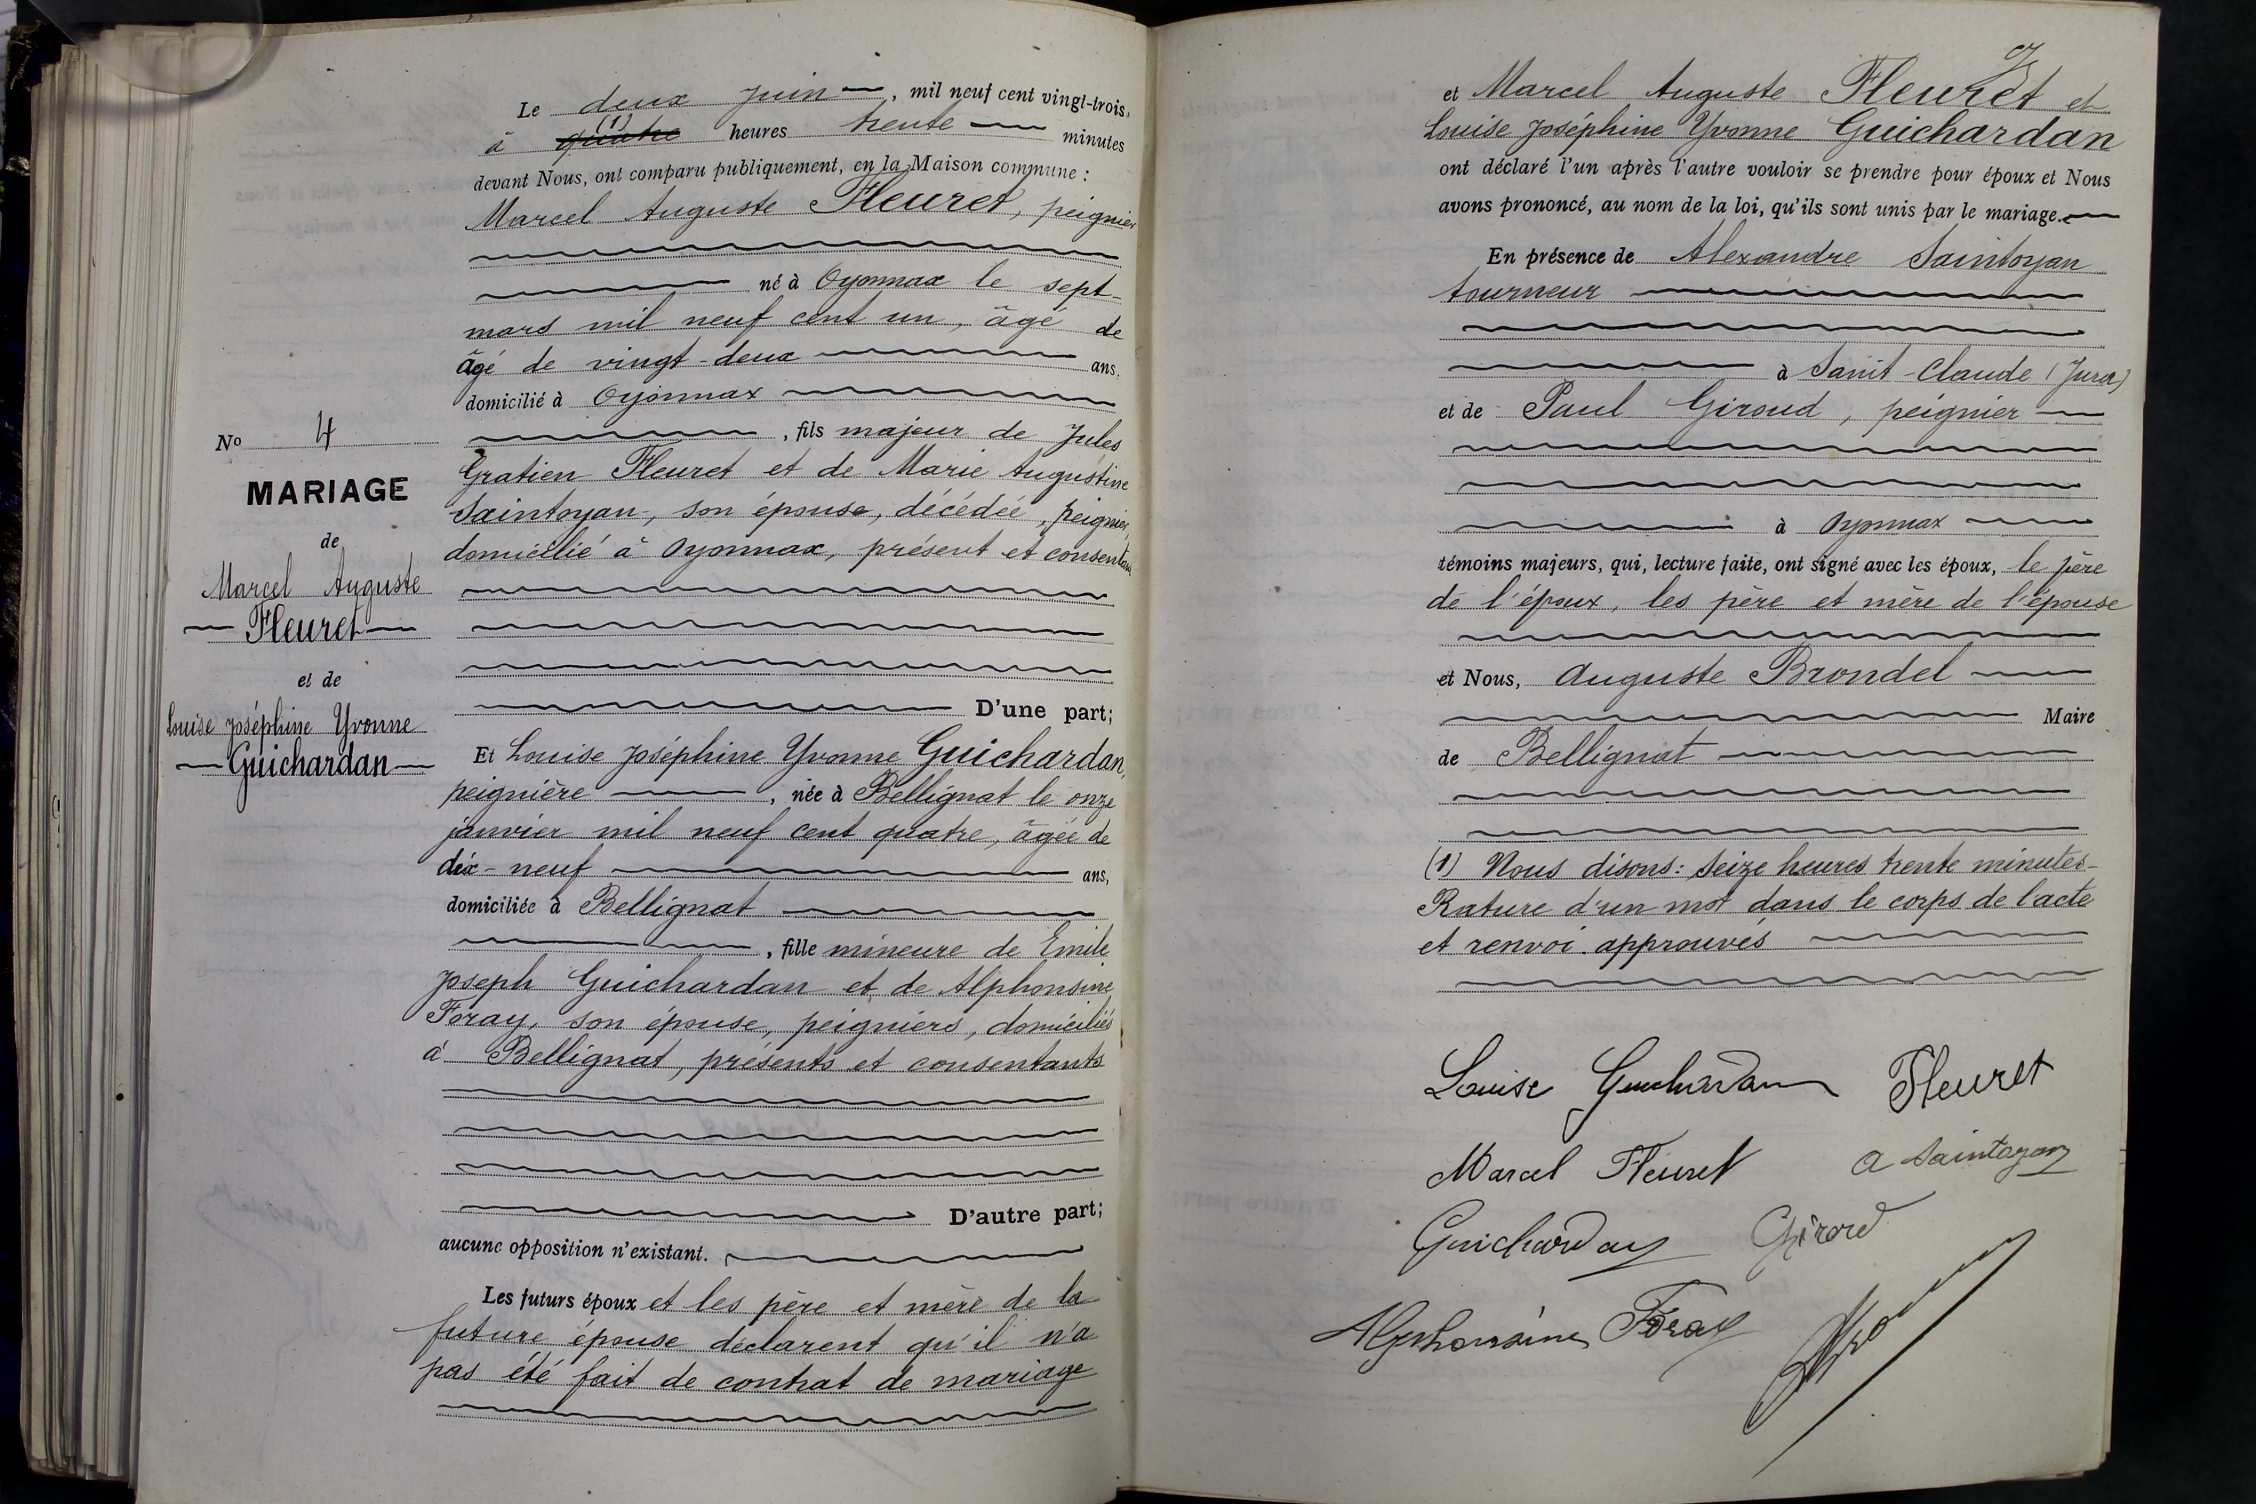 Le deux juin, mil neuf cent vingt-trois,
(1)
à quatre heures trente minutes
devant Nous, ont comparu publiquement, en la Maison commune :
Marcel Auguste Fleuret, peignier
né à Oyonnax le sept
mars mil neuf cent un, âgé de
âgé de vingt-deux ans,
domicilié à Oyonnax
, fils majeur de Jules
Gratien Fleuret et de Marie Augustine
Saintoyan, son épouse, décédée, peignier,
domicilié à Oyonnax, présent et consentant
D'une part;
Et Louise Joséphine Yvonne Guichardan,
peignière, née à Bellignat le onze
janvier mil neuf cent quatre, âgée de
dix-neuf ans,
domiciliée à Bellignat
, fille mineure de Emile
Joseph Guichardan et de Alphonsine
Foray, son épouse, peigniers, domiciliés
à Bellignat, présents et consentants
D'autre part;
aucune opposition n'existant.
Les futurs époux et les père et mère de la
future épouse déclarent qu'il n'a
pas été fait de contrat de mariage
No 4
MARIAGE
de
Marcel Auguste
Fleuret
et de
Louise Joséphine Yvonne
Guichardan
et Marcel Auguste Fleuret et
Louise Joséphine Yvonne Guichardan
ont déclaré l'un après l'autre vouloir se prendre pour époux et Nous
avons prononcé, au nom de la loi, qu'ils sont unis par le mariage.
En présence de Alexandre Saintoyan
tourneur
à Saint-Claude (Jura)
et de Paul Giroud, peignier
à Oyonnax
témoins majeurs, qui, lecture faite, ont signé avec les époux, le père
de l'époux, les père et mère de l'épouse
et Nous, Auguste Brondel
Maire
de Bellignat
(1) Nous disons: seize heures trente minutes
Rature d'un mot dans le corps de l'acte
et renvoi approuvés
Louise Guichardan Fleuret
Marcel Fleuret A Saintoyan
Guichardan
Alphonsine Foray